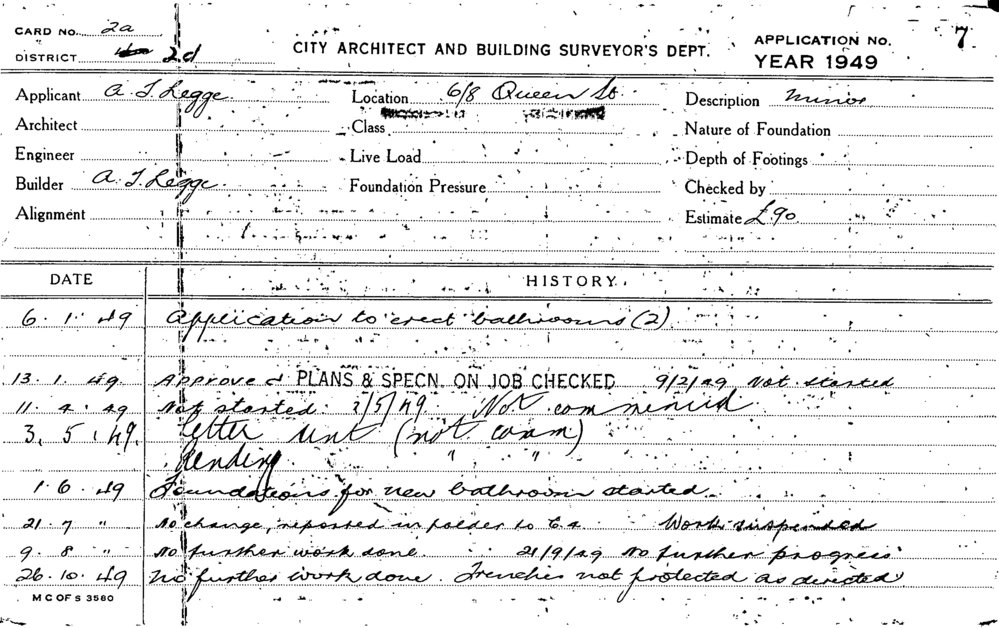 CARD No. 2a
DISTRICT 2d
CITY ARCHITECT AND BUILDING SURVEYOR'S DEPT.
APPLICATION No. 7
YEAR 1949
Applicant A. J. Legge Location 6/8 Queen St. Description Minor
Architect Class Nature of Foundation
Engineer Live Load Depth of Footings
Builder A. J. Legge. Foundation Pressure Checked by
Alignment Estimate £90
DATE HISTORY
6. 1. 49 Application to erect bathrooms (2)
13. 1. 49. Approved PLANS & SPECN. ON JOB CHECKED 9/2/49 Not started
11. 4. 49 Not started. 2/5/49. Not commenced
3. 5. 49. Letter sent (not comm)
Pending " "
1. 6. 49 Foundations for new bathroom started.
21. 7 " No change, reported in folder to Work suspended
9. 8 " No further work done. 21/9/49 No further progress
26. 10. 49 No further work done. Trenches not protected as directed
M C OF S 3580